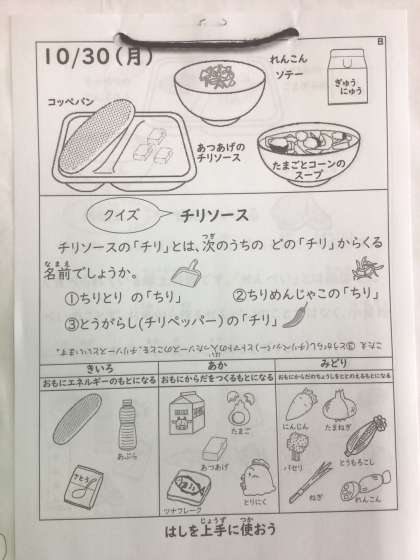 10/30(月)
B
れんこん
ソテー
ぎゅう
にゅう
コッペパン
あつあげの
チリソース
たまごとコーンの
スープ
クイズ
チリソース
チリソースの「チリ」とは、次のうちの どの「チリ」からくる
つぎ
名前でしょうか。
なまえ
①ちりとり の「ちり」
②ちりめんじゃこの「ちり」
③とうがらし(チリペッパー)の「チリ」
こたえ ③とうがらし(チリペッパー)とトマトの入ったソースのことを、チリソースといいます。
はい
きいろ
あか
みどり
おもにエネルギーのもとになる
おもにからだをつくるもとになる
おもにからだのちょうしをととのえるもとになる
あぶら
さとう
たまご
あつあげ
ツナフレーク
とりにく
にんじん
たまねぎ
パセリ
とうもろこし
ねぎ
れんこん
じょうず
つか
はしを上手に使おう